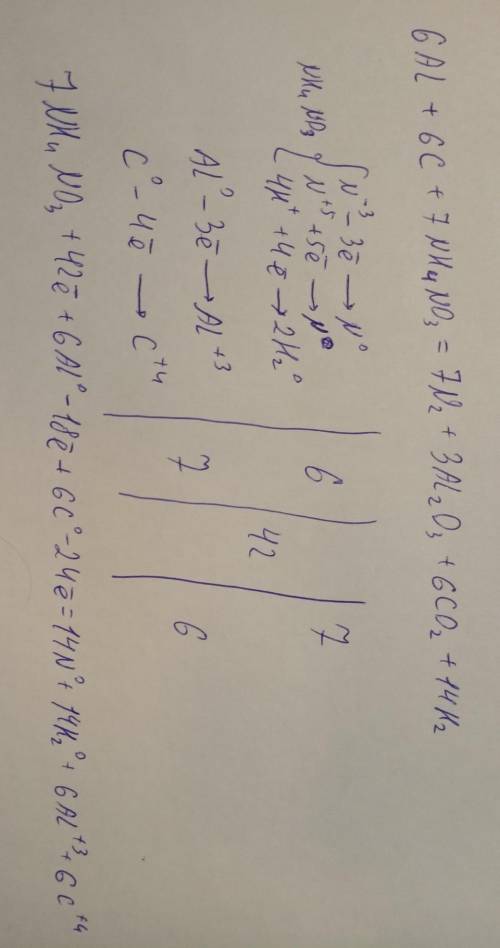 6Al + 6C + 7NH₄NO₃ = 7N₂ + 3Al₂O₃ + 6CO₂ + 14H₂
NH₄NO₃ { N⁻³ - 3ē → N⁰
N⁺⁵ + 5ē → N⁰
4H⁺ + 4ē → 2H₂⁰
Al⁰ - 3ē → Al⁺³
C⁰ - 4ē → C⁺⁴
6 | 42 | 7
7 | | 6
7NH₄NO₃ + 42ē + 6Al⁰ - 18ē + 6C⁰ - 24ē = 14N⁰ + 14H₂⁰ + 6Al⁺³ + 6C⁺⁴